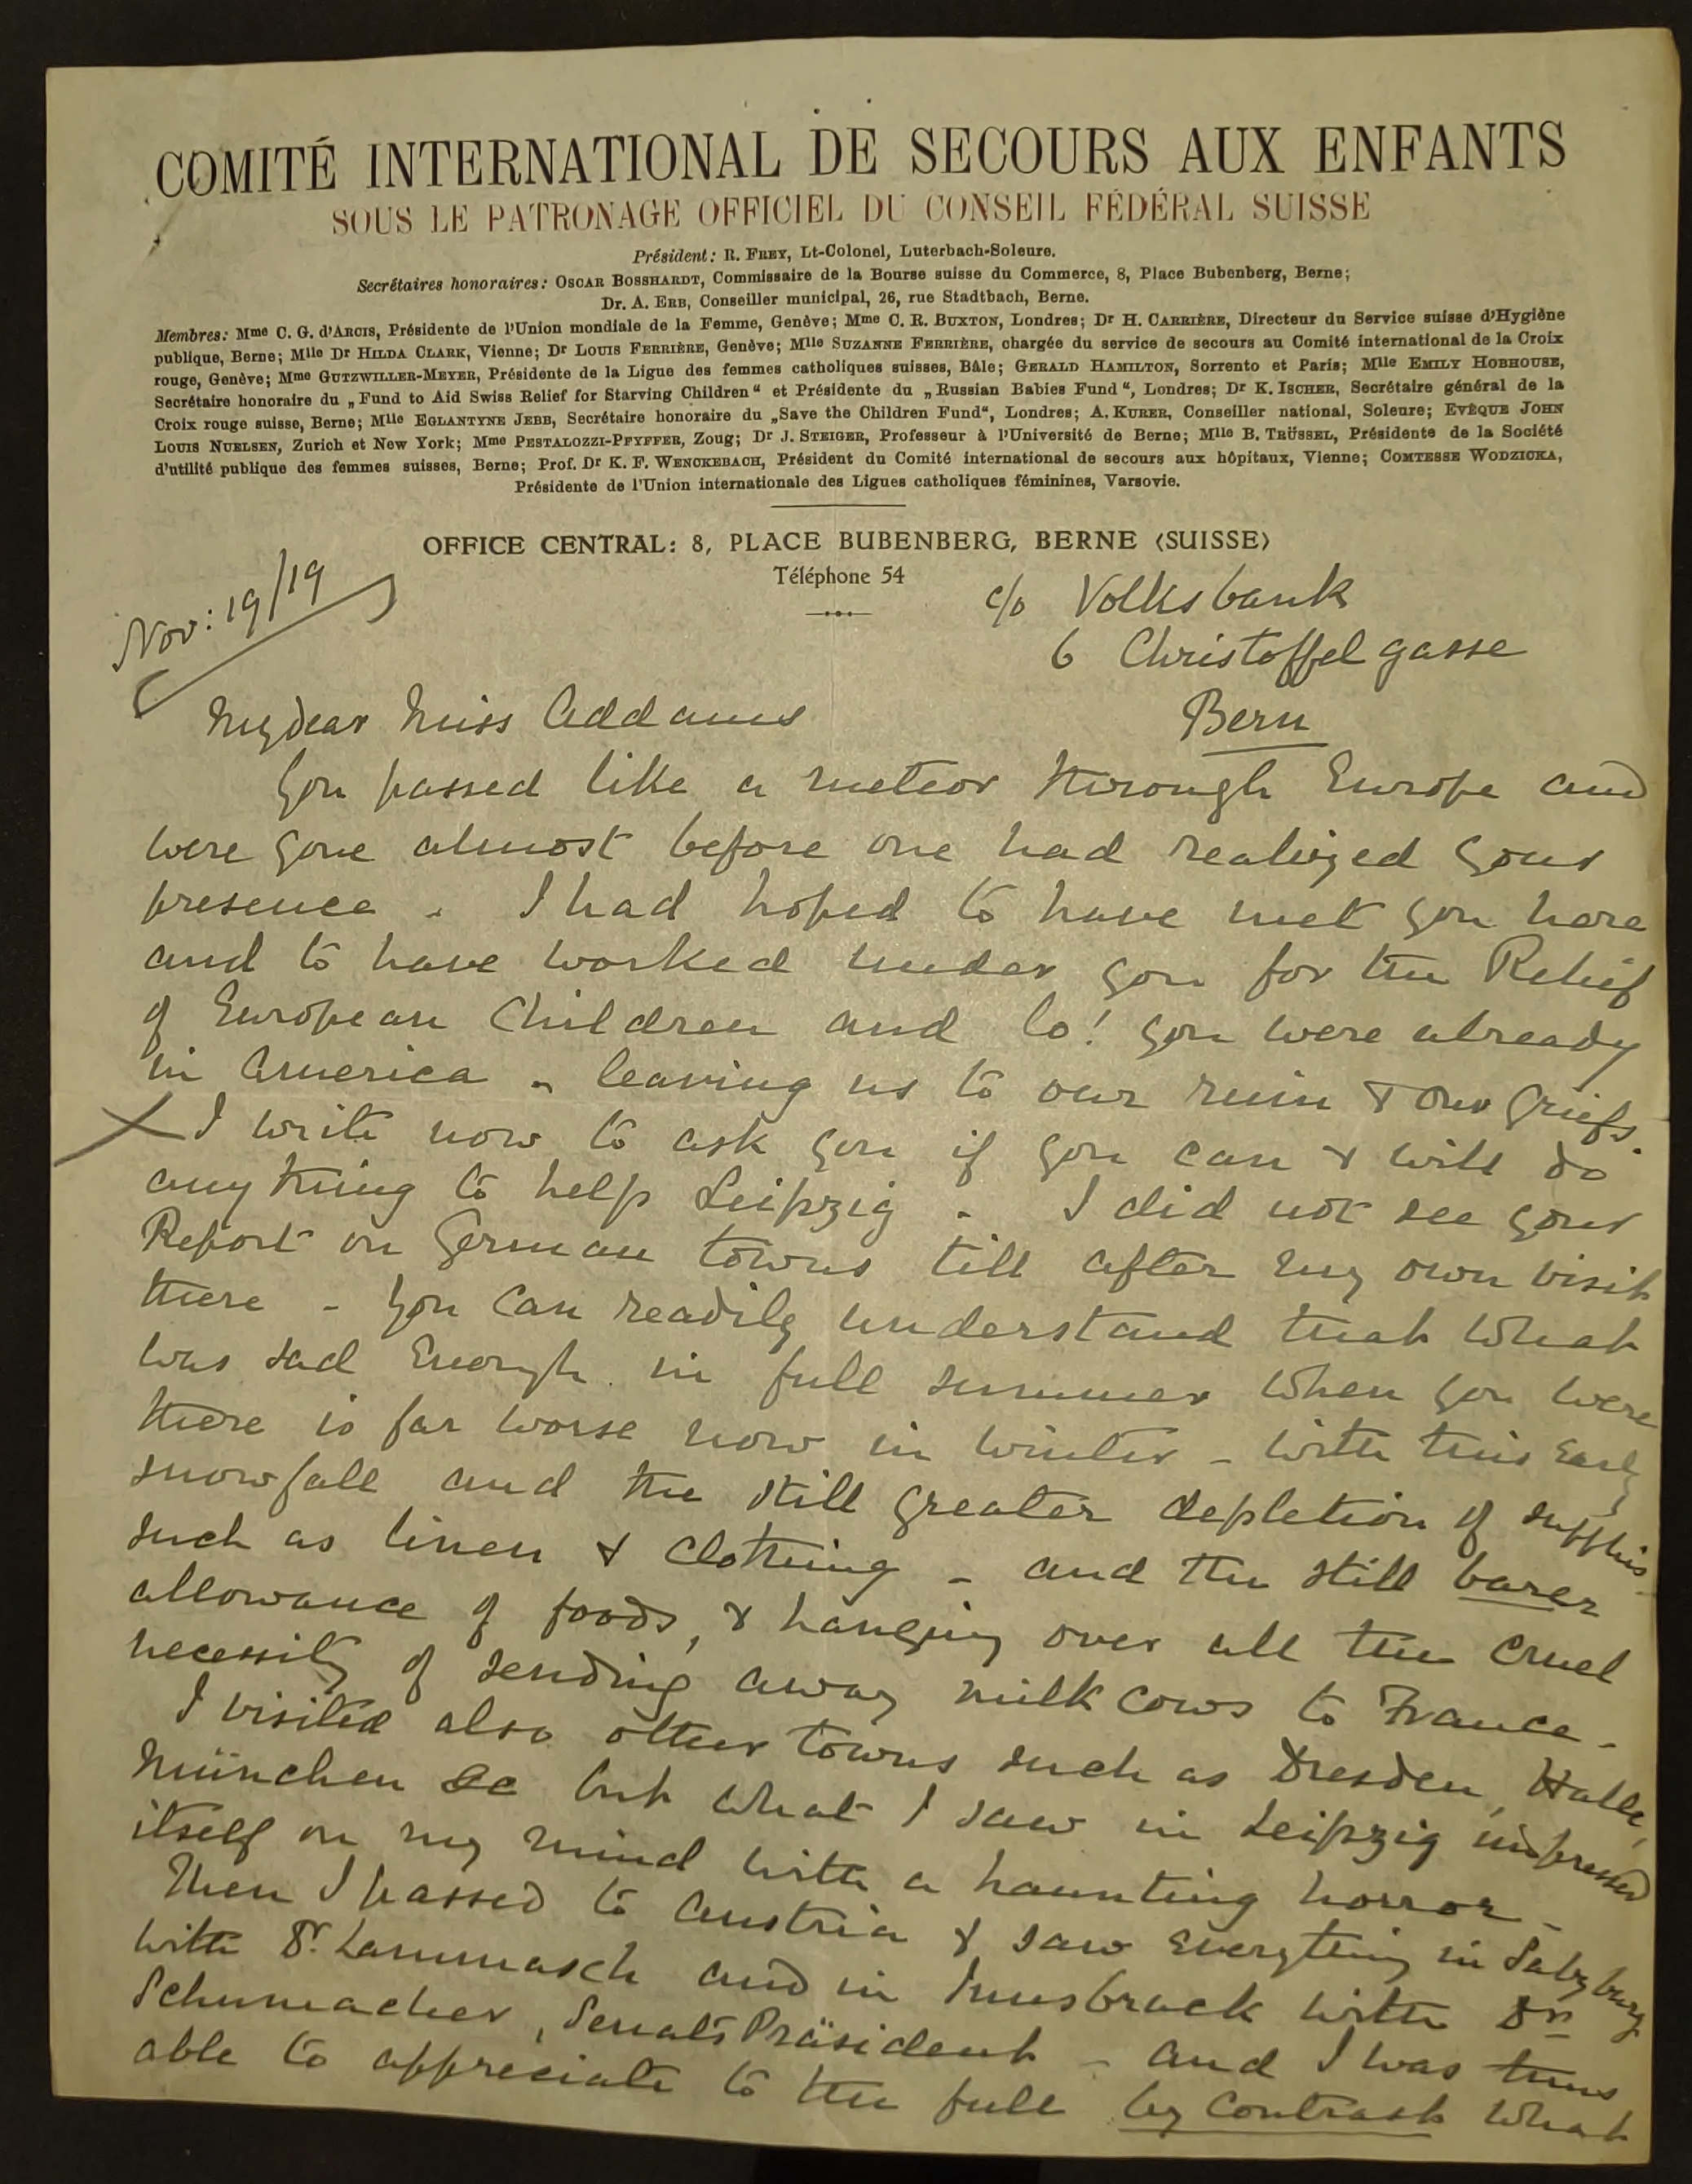 COMITÉ INTERNATIONAL DE SECOURS AUX ENFANTS
SOUS LE PATRONAGE OFFICIEL DU CONSEIL FÉDÉRAL SUISSE
Président: R. FREY, Lt-Colonel, Luterbach-Soleure.
Secrétaires honoraires: OSCAR BOSSHARDT, Commissaire de la Bourse suisse du Commerce, 8, Place Bubenberg, Berne;
Dr. A. ERB, Conseiller municipal, 26, rue Stadtbach, Berne.
Membres: Mme C. G. d'ARCIS, Présidente de l'Union mondiale de la Femme, Genève; Mme C. R. BUXTON, Londres; Dr H. CARRIÈRE, Directeur du Service suisse d'Hygiène
publique, Berne; Mlle Dr HILDA CLARK, Vienne; Dr LOUIS FERRIÈRE, Genève; Mlle SUZANNE FERRIÈRE, chargée du service de secours au Comité international de la Croix
rouge, Genève; Mme GUTZWILLER-MEYER, Présidente de la Ligue des femmes catholiques suisses, Bâle; GERALD HAMILTON, Sorrento et Paris; Mlle EMILY HOBHOUSE,
Secrétaire honoraire du „Fund to Aid Swiss Relief for Starving Children“ et Présidente du „Russian Babies Fund“, Londres; Dr K. ISCHER, Secrétaire général de la
Croix rouge suisse, Berne; Mlle EGLANTYNE JEBB, Secrétaire honoraire du „Save the Children Fund“, Londres; A. KURER, Conseiller national, Soleure; EVÊQUE JOHN
LOUIS NUELSEN, Zurich et New York; Mme PESTALOZZI-PFYFFER, Zoug; Dr J. STEIGER, Professeur à l'Université de Berne; Mlle B. TRÜSSEL, Présidente de la Société
d'utilité publique des femmes suisses, Berne; Prof. Dr K. F. WENCKEBACH, Président du Comité international de secours aux hôpitaux, Vienne; COMTESSE WODZICKA,
Présidente de l'Union internationale des Ligues catholiques féminines, Varsovie.
OFFICE CENTRAL: 8, PLACE BUBENBERG, BERNE (SUISSE)
Téléphone 54
Nov: 19/19
c/o Volksbank
6 Christoffelgasse
Bern
My dear Miss Addams
You passed like a meteor through Europe and
were gone almost before one had realized your
presence. I had hoped to have met you here
and to have worked under you for the Relief
of European Children and lo! you were already
in America - leaving us to our ruin & our griefs.
I write now to ask you if you can & will do
anything to help Leipzig. I did not see your
Report on German towns till after my own visit
there - You can readily understand that what
was sad enough in full summer when you were
there is far worse now in winter - with this early
snowfall and the still greater depletion of supplies
such as linen & clothing - and the still barer
allowance of foods, & hanging over all the cruel
necessity of sending away milk cows to France -
I visited also other towns such as Dresden, Halle,
München &c but what I saw in Leipzig impressed
itself on my mind with a haunting horror -
Then I passed to Austria & saw everything in Salzburg
with Dr. Lammasch and in Innsbruck with Dr
Schumacher, SenatsPräsident - and I was thus
able to appreciate to the full by contrast what